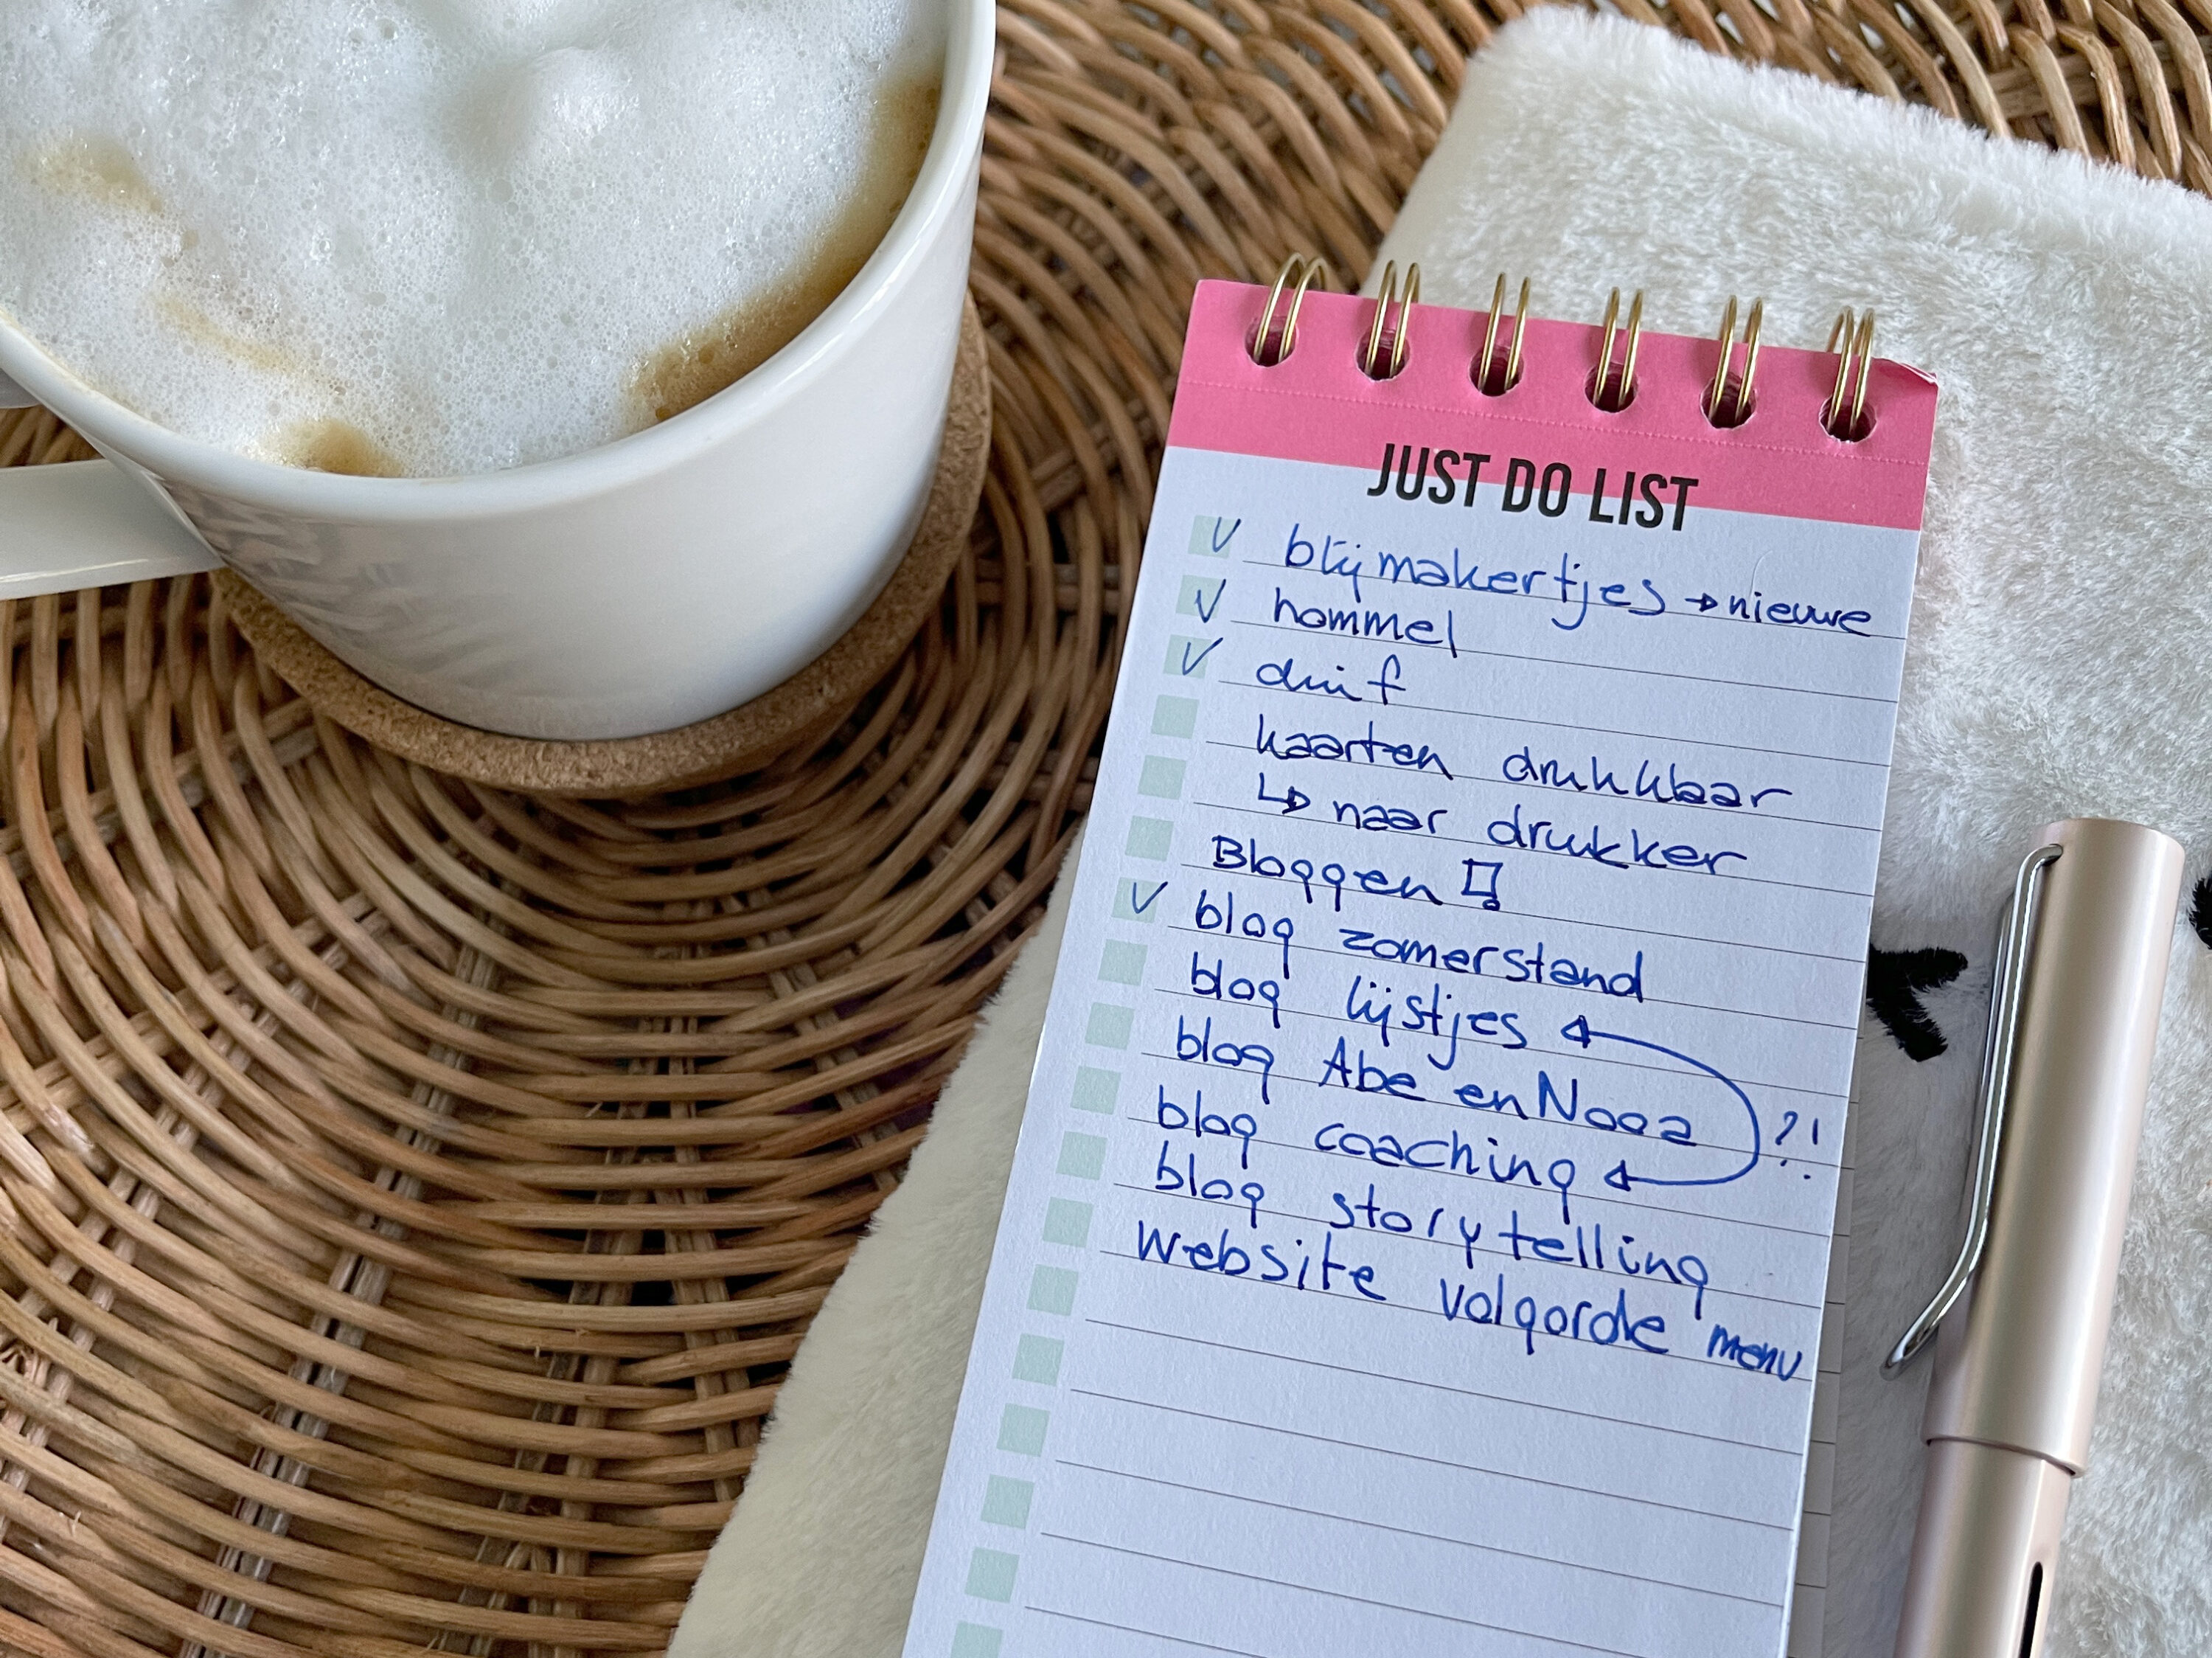 JUST DO LIST
✓ blijmakertjes → nieuwe
✓ hommel
✓ duif
kaarten drukkbaar
↳ naar drukker
Bloggen !
✓ blog zomerstand
blog lijstjes
blog Abe en Nooa
?!
blog coaching
blog storytelling
website volgorde menu